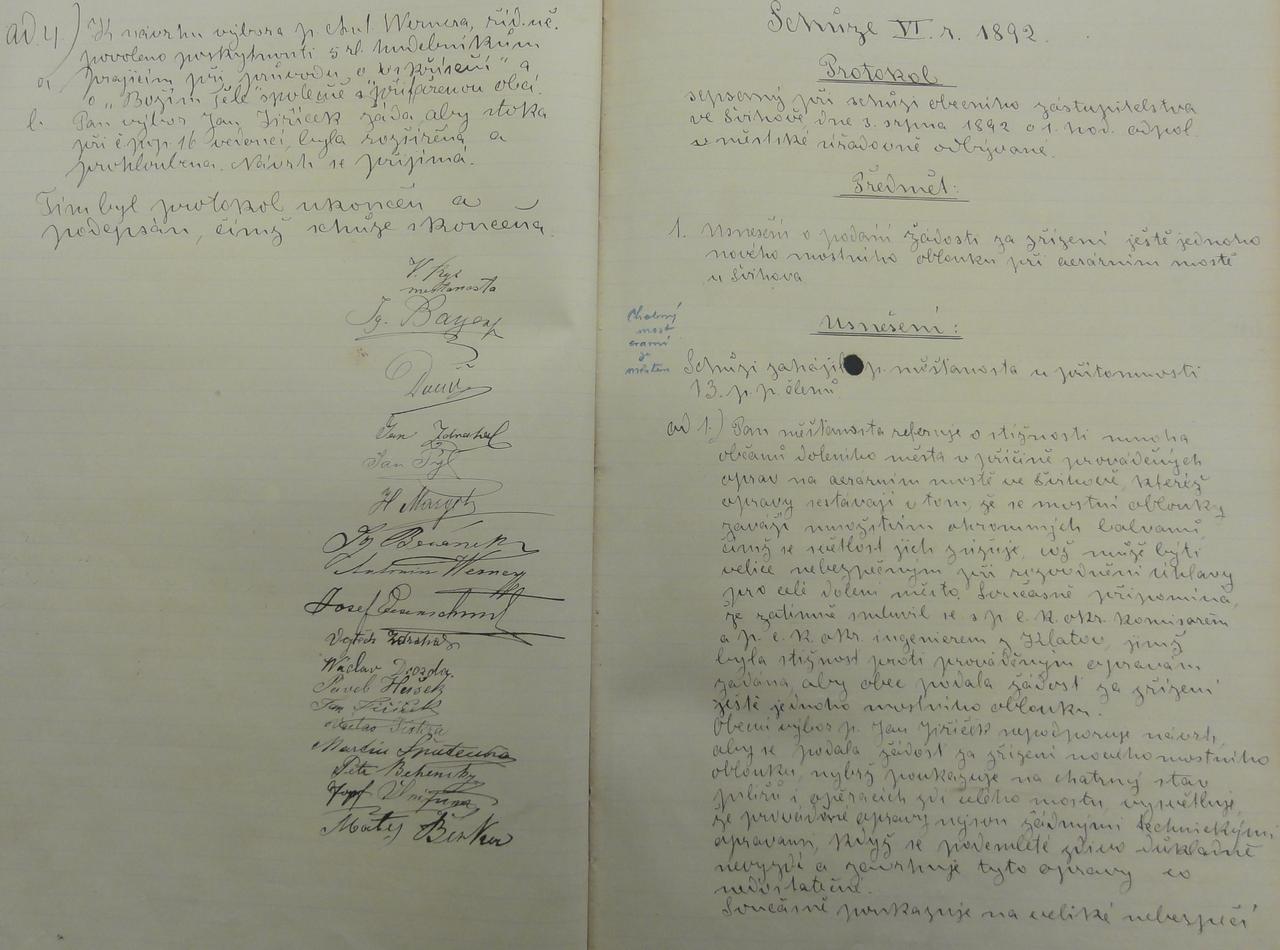 ad 4.) K návrhu výbora p. Ant. Wernera, říd. uč.
povoleno poskytnouti 5 zl. hudebníkům
a, hrajícím při průvodu o „vskříšení“ a
o „Božím těle“ společně s přifařenou obcí.
b. Pan výbor Jan Jiříček žádá, aby stoka
při čp. 16 vedoucí, byla rozšířena a
prohloubena. Návrh se přijímá.
Tím byl protokol ukončen a
podepsán, čímž schůze skončena.
V. Rys
měšťanosta
Ig. Bayer
Jan Zdrahal
Jan Pýl
Antonín Werner
Josef
Vojtěch Zdrahal
Wáclav Drozda
Pavel Hešek
Jan Jiříček
Martin
Petr
Josef
Matěj Berka
Schůze VI. r. 1892.
Protokol
sepsaný při schůzi obecního zastupitelstva
ve Švihově dne 3. srpna 1892 o 1. hod. odpol.
v městské úřadovně odbývané.
Předmět:
1. Usnešení o podání žádosti za zřízení ještě jednoho
nového mostního oblouku při aerárním mostě
u Švihova
Usnešení:
Chatrný
most
erární
za
městem
Schůzi zahájil p. měšťanosta u přítomnosti
13. p. p. členů
ad 1.) Pan měšťanosta referuje o stížnosti mnoha
občanů doleního města v příčině prováděných
oprav na aerárním mostě ve Švihově, kteréž
opravy sestávají v tom, že se mostní oblouky
zaváží množstvím ohromných balvanů,
čímž se světlost jich zužuje, což může býti
velice nebezpečným při rozvodnění Úhlavy
pro celé dolení město. Současně připomíná,
že zatímně smluvil se s p. c. k. okr. komisařem
a p. c. k. okr. ingenierem z Klatov, jimž
byla stížnost proti prováděným opravám
zadána, aby obec podala žádost za zřízení
ještě jednoho mostního oblouku.
Obecní výbor p. Jan Jiříček nepodporuje návrh,
aby se podala žádost za zřízení nového mostního
oblouku, nýbrž poukazuje na chatrný stav
pilířů i opěracích zdí celého mostu, vysvětluje,
že prováděné opravy nejsou žádnými technickými
opravami, když se podemleté zdivo důkladně
nevyzdí a zavrhuje tyto opravy co
nedostatečné.
Současně poukazuje na veliké nebezpečí